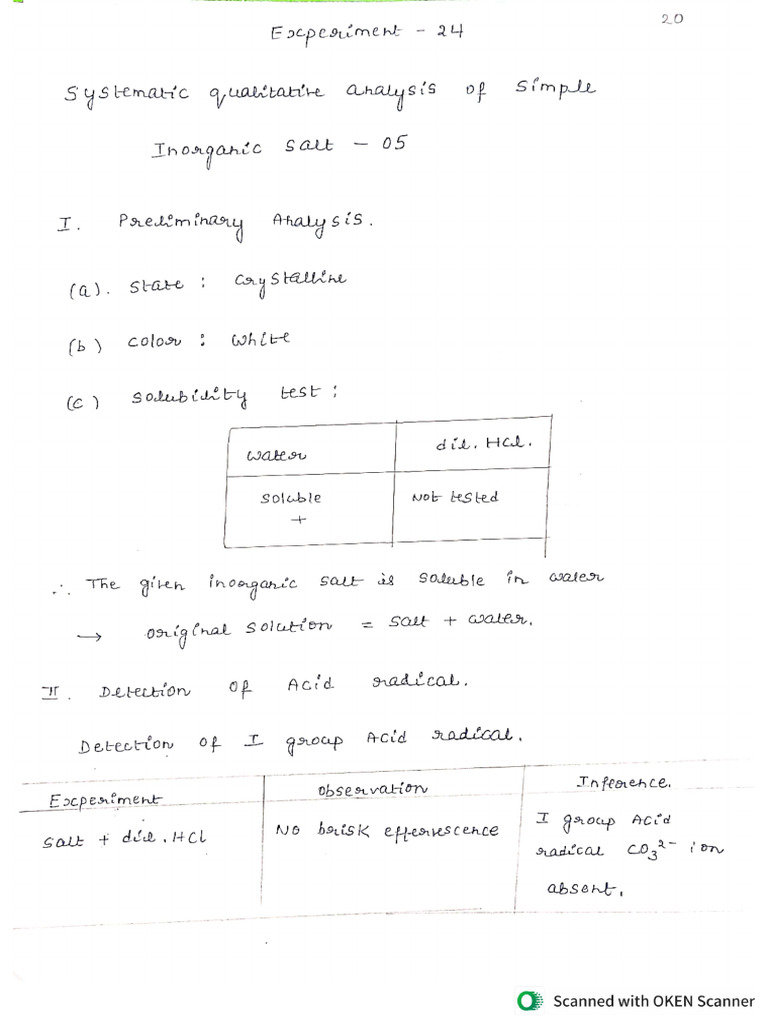 20
Experiment - 24
Systematic qualitative analysis of Simple
Inorganic Salt - 05
I. Preliminary Analysis.
(a). State : Crystalline
(b) Colour : White
(c) Solubility test :
water dil. HCl.
Soluble Not tested
+
∴ The given inorganic salt is soluble in water
→ original solution = salt + water.
II. Detection of Acid radical.
Detection of I group Acid radical.
Experiment observation Inference.
Salt + dil. HCl No brisk effervescence I group Acid
radical CO₃²⁻ ion
absent.
Scanned with OKEN Scanner